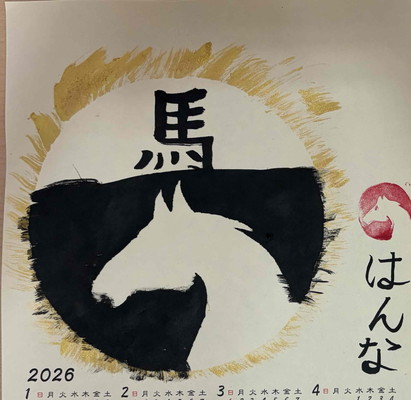 馬
はんな
2026
1 日月火水木金土 2 日月火水木金土 3 日月火水木金土 4 日月火水木金土